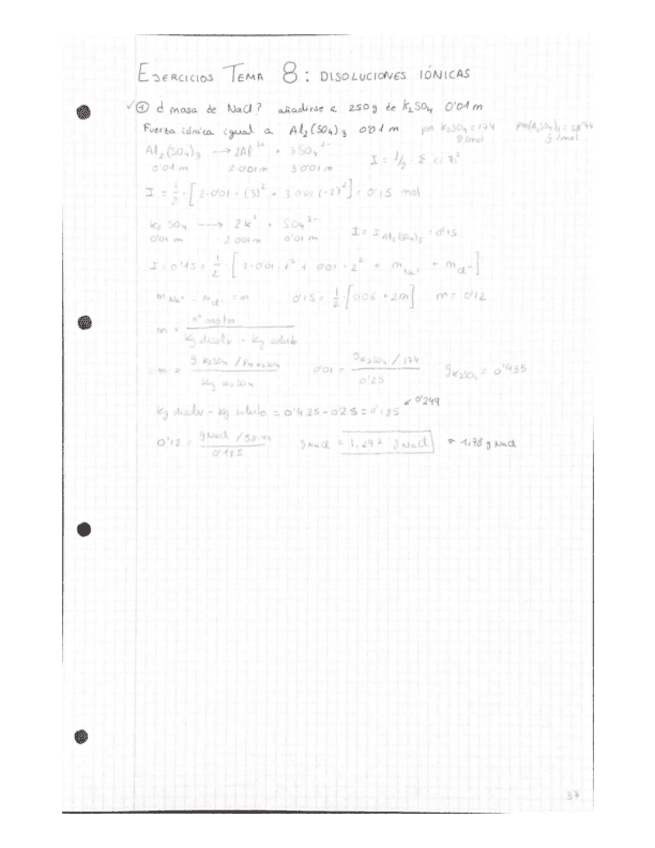 EJERCICIOS TEMA 8: DISOLUCIONES IÓNICAS
① ¿ masa de NaCl? añadirse a 250 g de K₂SO₄ 0'01 m
Fuerza iónica igual a Al₂(SO₄)₃ 0'01 m pm K₂SO₄ = 174 g/mol
Al₂(SO₄)₃ → 2Al³⁺ + 3SO₄²⁻ I = 1/2 · Σ ci zi²
0'01 m 2·0'01 m 3·0'01 m
I = 1/2 · [2·0'01 · (3)² + 3·0'01 (-2)²] = 0'15 mol
K₂SO₄ → 2K⁺ + SO₄²⁻ I = I Al₂(SO₄)₃ = 0'15
0'01 m 2·0'01 m 0'01 m
I = 0'15 = 1/2 · [2·0'01 · 1² + 0'01 · 2² + m Na⁺ + m Cl⁻]
m Na⁺ = m Cl⁻ = m 0'15 = 1/2 · [0'06 + 2m] m = 0'12
m = nº moles / kg disolv - kg soluto
m = g K₂SO₄ / Pm K₂SO₄ / kg K₂SO₄ 0'01 = g K₂SO₄ / 174 / 0'25 g K₂SO₄ = 0'435
kg disolv - kg soluto = 0'435 - 0'25 = 0'185 0'249
0'12 = g NaCl / 58'44 / 0'185 g NaCl = 1,297 g NaCl 1,78 g NaCl
37